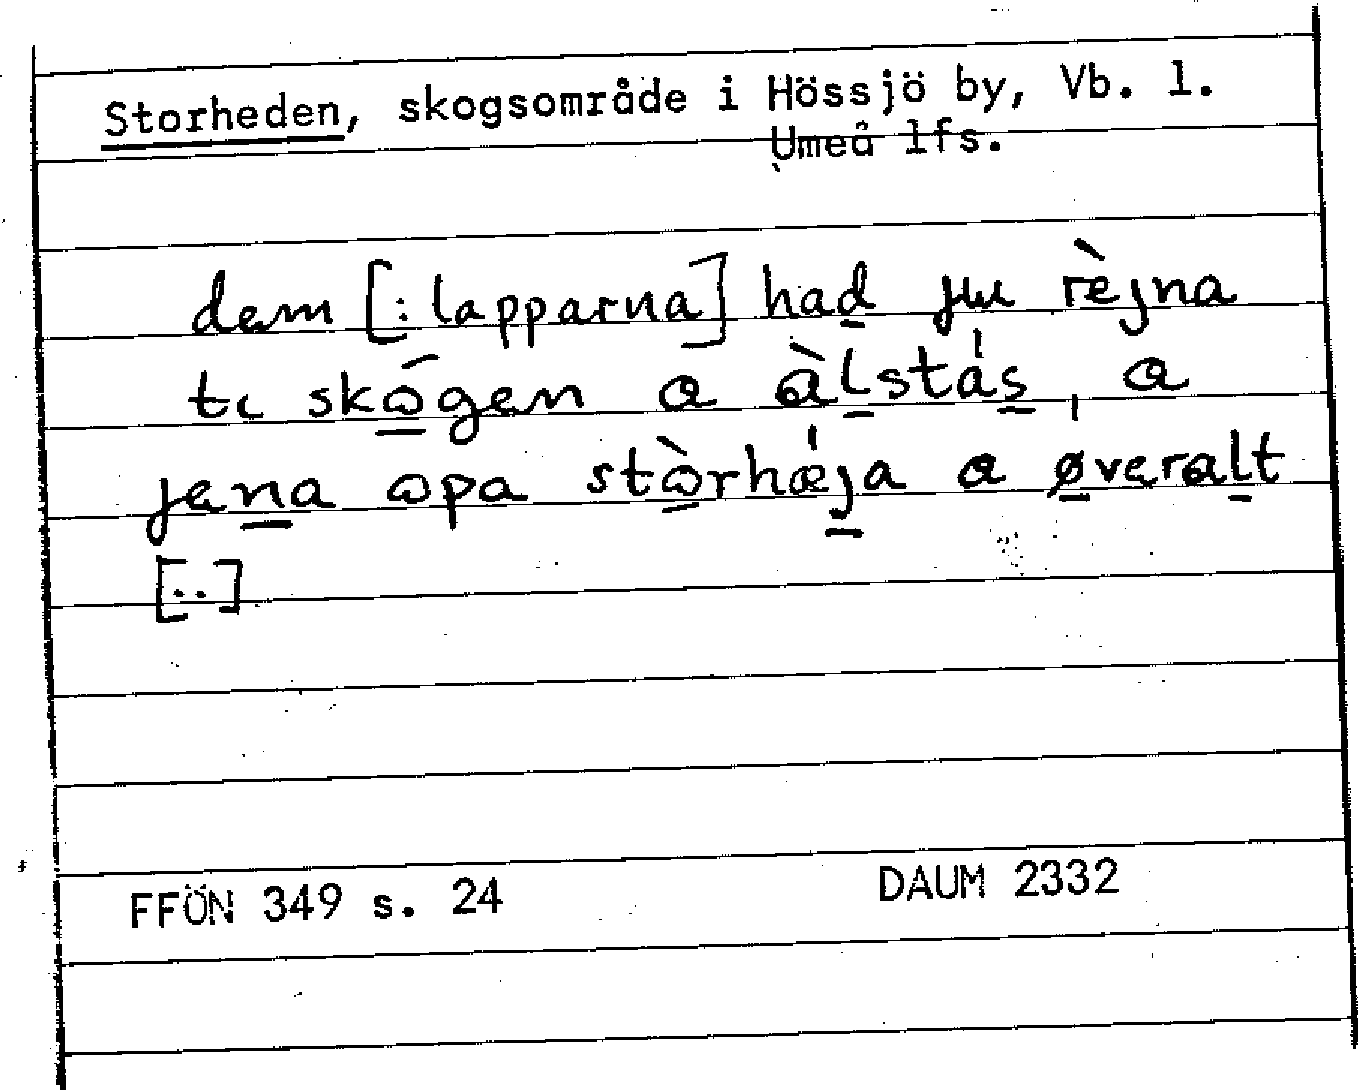 Storheden, skogsområde i Hössjö by, Vb. l.
Umeå lfs.
dem [: lapparna] had ju rèjna
tɩ skógen a àlstás, a
jena opa stòrhǽja a øveralt
[..]
FFÖN 349 s. 24
DAUM 2332